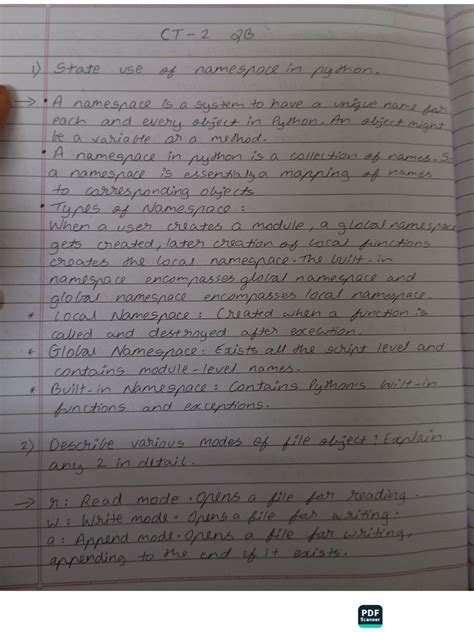 CT-2 QB
1) State use of namespace in python.
→ • A namespace is a system to have a unique name for
each and every object in Python. An object might
be a variable or a method.
• A namespace in python is a collection of names. So
a namespace is essentially a mapping of names
to corresponding objects
• Types of Namespace :
When a user creates a module, a global namespace
gets created, later creation of local functions
creates the local namespace. The built-in
namespace encompasses global namespace and
global namespace encompasses local namespace.
* Local Namespace : Created when a function is
called and destroyed after execution.
* Global Namespace : Exists all the script level and
contains module-level names.
* Built-in Namespace : Contains Python's built-in
functions and exceptions.
2) Describe various modes of file object ? Explain
any 2 in detail.
→ r : Read mode. Opens a file for reading.
w : Write mode. Opens a file for writing.
a : Append mode. Opens a file for writing,
appending to the end if it exists.
PDF
Scanner